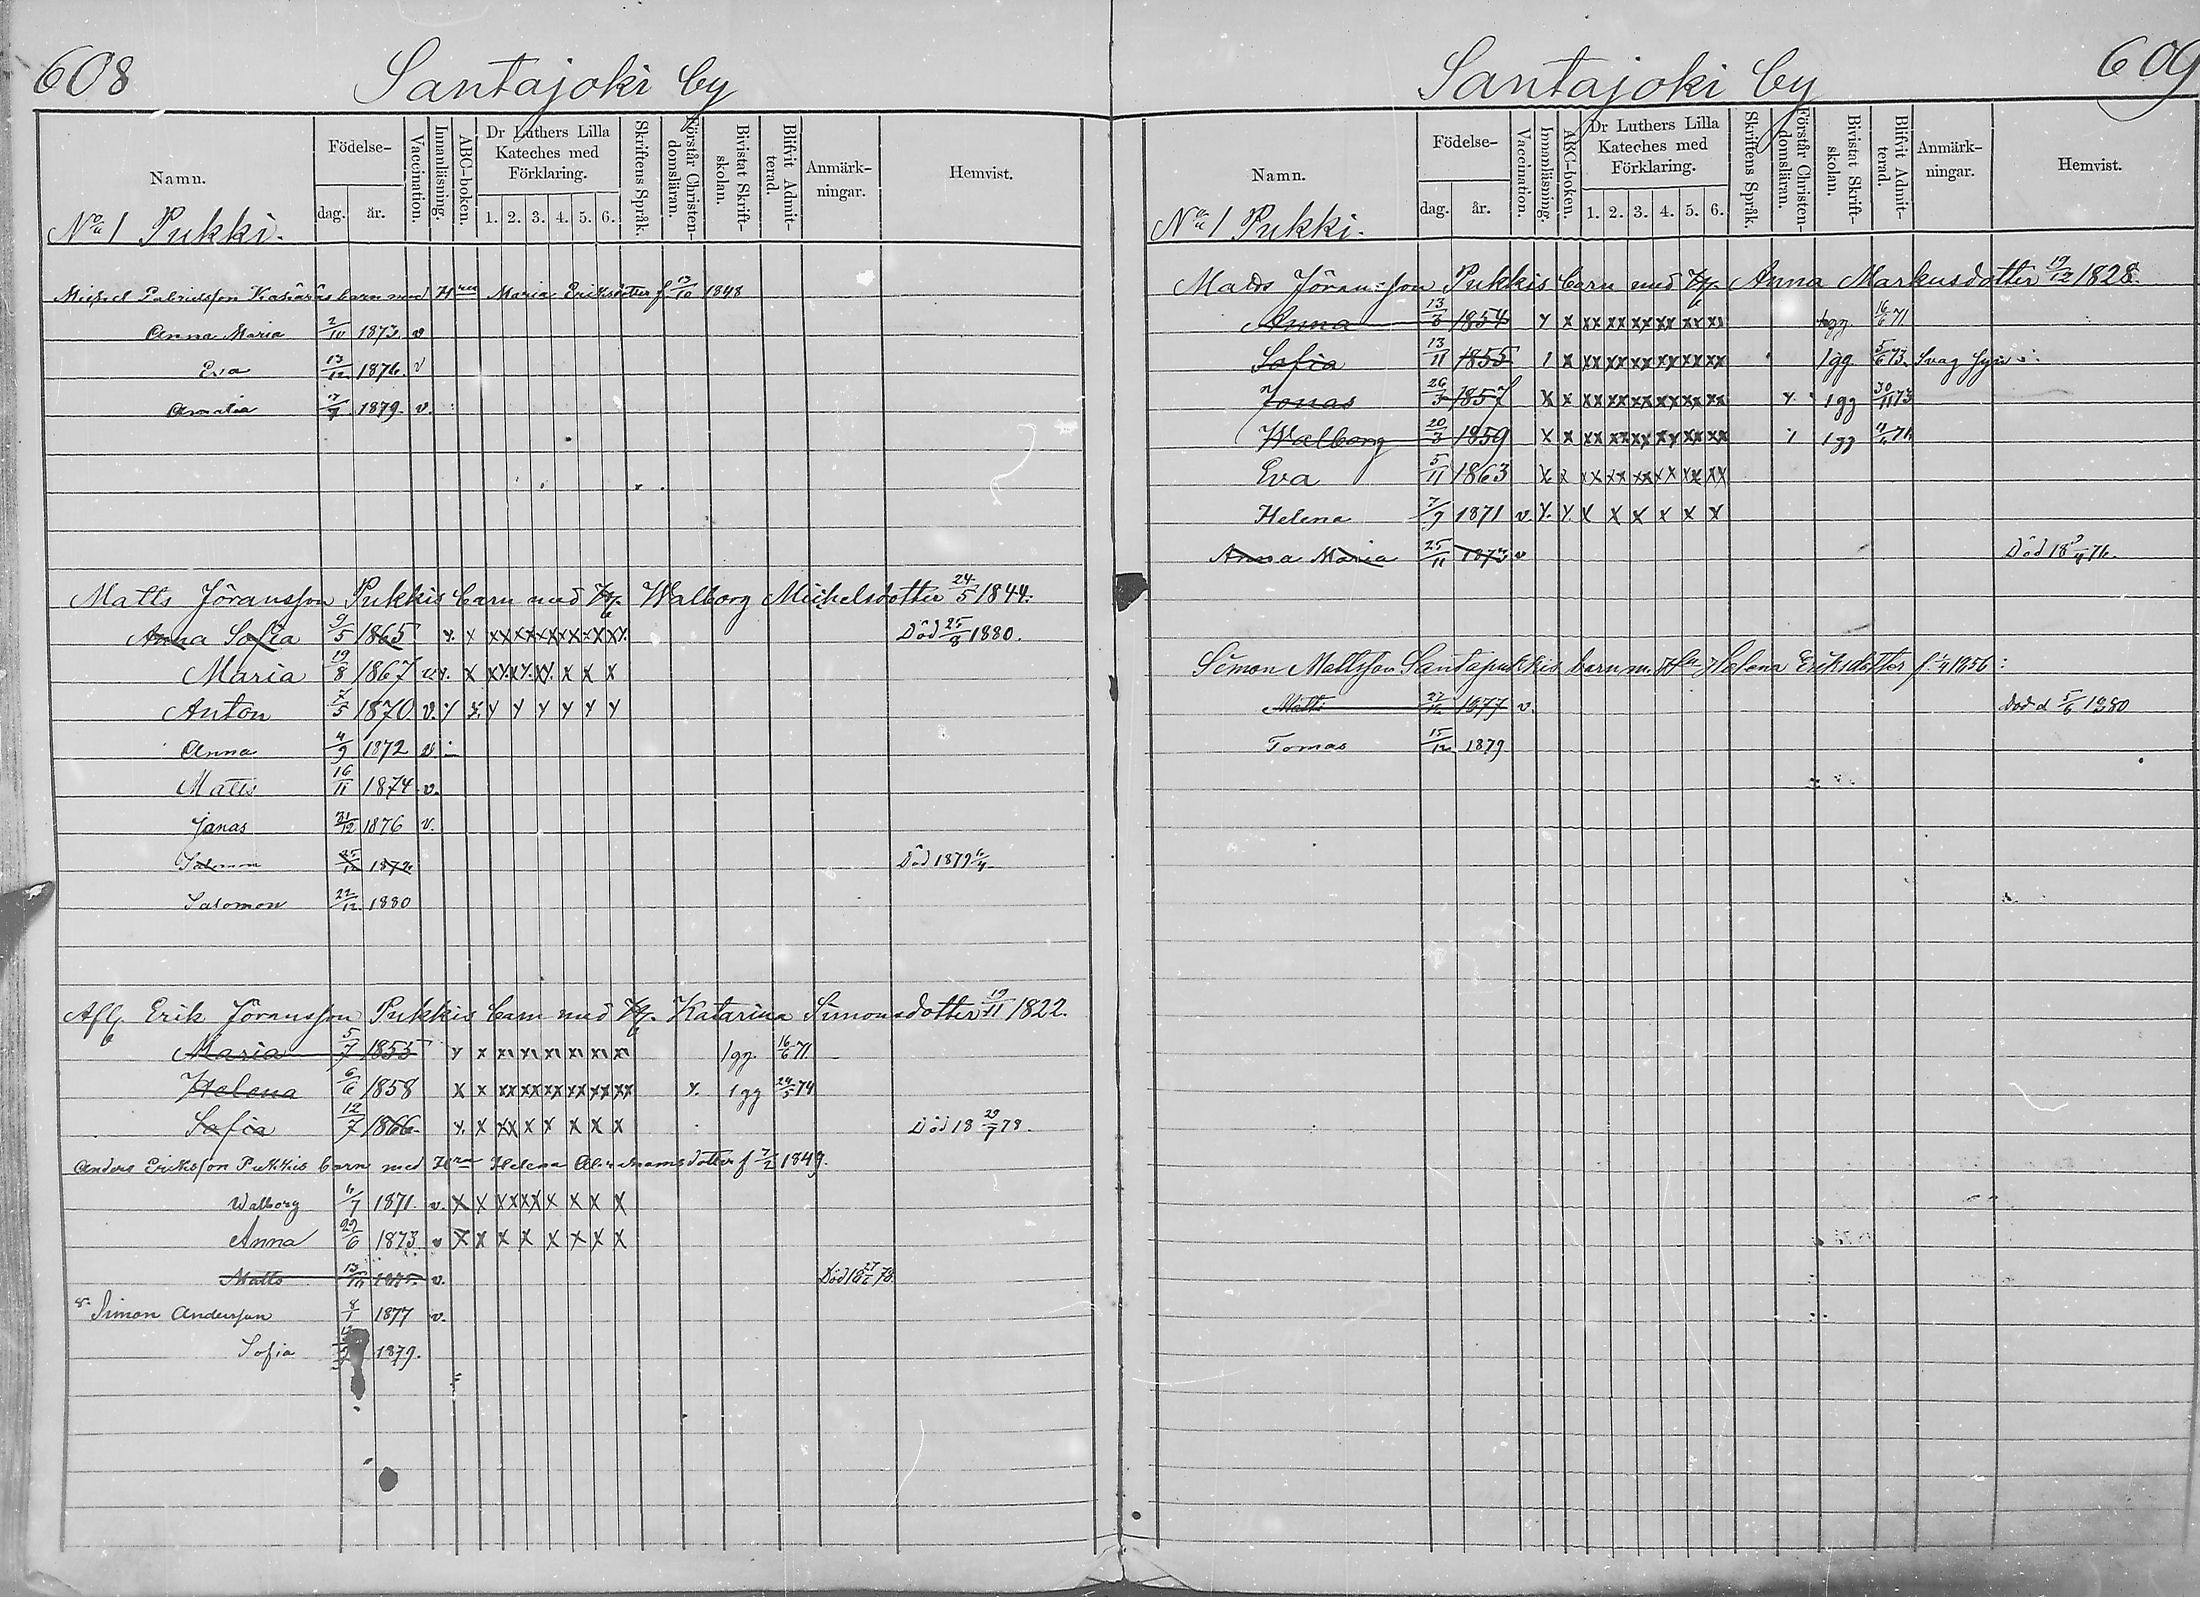 608
Santajoki by
Namn.
Födelse-
dag.
år.
Vaccination.
Innanläsning.
ABC-boken.
Dr Luthers Lilla
Kateches med
Förklaring.
1. 2. 3. 4. 5. 6.
Skriftens Språk.
Förstår Christen-
domsläran.
Bivistat Skrift-
skolan.
Blifvit Admit-
terad.
Anmärk-
ningar.
Hemvist.
No 1 Pukki.
barn med Hru Maria Eriksdotter f. 1848
Anna Maria 2/10 1873 v
Eva 13/12 1876 v
1879. v.
Matts Jöransson Pukkis barn med Hu. Walborg Michelsdotter 24/5 1844.
Anna Sofia 9/5 1865 x x xx xx xx xx xx xx Död 25/8 1880.
Maria 19/8 1867 v x. x xx xx xx x x x
Anton 7/5 1870 v. x x x x x x x x
Anna 4/9 1872 v
Matts 16/11 1874 v.
Jonas 31/12 1876 v.
Salomon Död 1879
Salomon 22/12 1880
Afl. Erik Jöransson Pukkis barn med Hu. Katarina Simonsdotter 19/11 1822.
Maria 5/7 1855 x x xx xx xx xx xx xx 1 gg. 16/6 71
Helena 6/6 1858 x x xx xx xx xx xx xx x. 1 gg 24/5 74
Sofia 12/7 1866 x. x xx x x x x x Död 18 29/7 78.
Anders Eriksson Pukkis barn med Hru Helena Abrahamsdotter f 7/2 1849.
Walborg 11/7 1871. v. x x xx xx x x x x
Anna 22/6 1873 v x x x x x x x x
Matts 1875. v. Död
Simon Andersson 8/1 1877 v.
Sofia 1879.
609
Santajoki by
Namn.
Födelse-
dag.
år.
Vaccination.
Innanläsning.
ABC-boken.
Dr Luthers Lilla
Kateches med
Förklaring.
1. 2. 3. 4. 5. 6.
Skriftens Språk.
Förstår Christen-
domsläran.
Bivistat Skrift-
skolan.
Blifvit Admit-
terad.
Anmärk-
ningar.
Hemvist.
No 1 Pukki.
Matts Jöransson Pukkis barn med Hu. Anna Markusdotter 19/12 1828.
Anna 13/3 1854 x x xx xx xx xx xx xx 1 gg. 16/6 71
Sofia 13/11 1855 x x xx xx xx xx xx xx 1 gg. 5/6 73. Svag
Jonas 26/3 1857 x x xx xx xx xx xx xx x. 1 gg 30/11 73
Walborg 20/3 1859 x x xx xx xx xx xx xx x 1 gg
Eva 5/11 1863 x x xx xx xx xx xx xx
Helena 7/9 1871 v. x. x. x x x x x x
Anna Maria 25/11 1873 v Död 18 76.
Simon Mattsson Santapukkis barn m. Hu Helena Eriksdotter f. 1856
Matts 1877 v. död d 5/6 1880
Tomas 15/12 1879